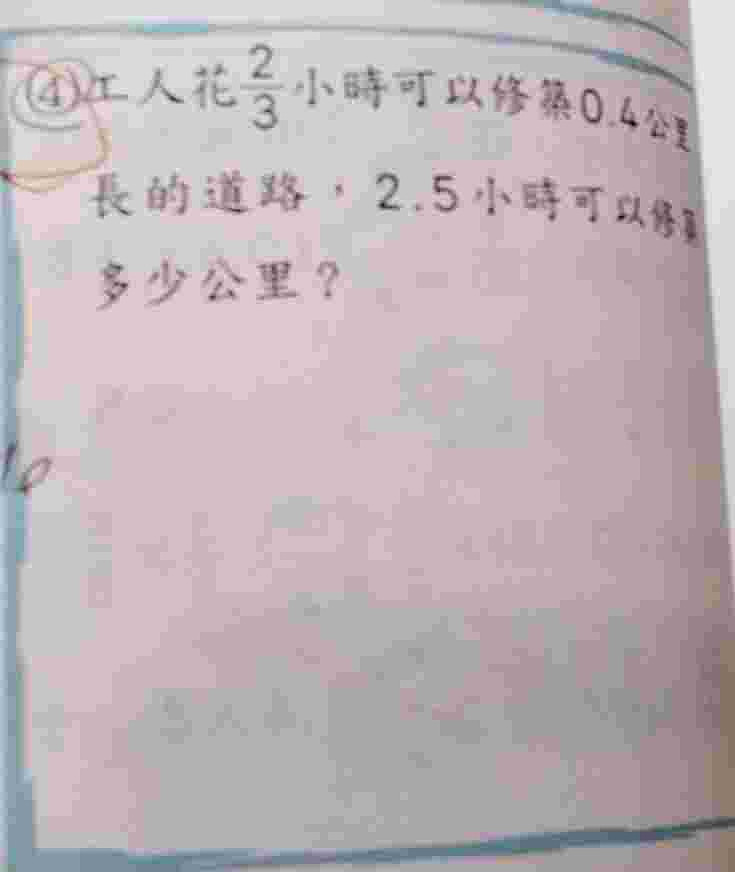 ④工人花2/3小時可以修築0.4公里
長的道路，2.5小時可以修築
多少公里？